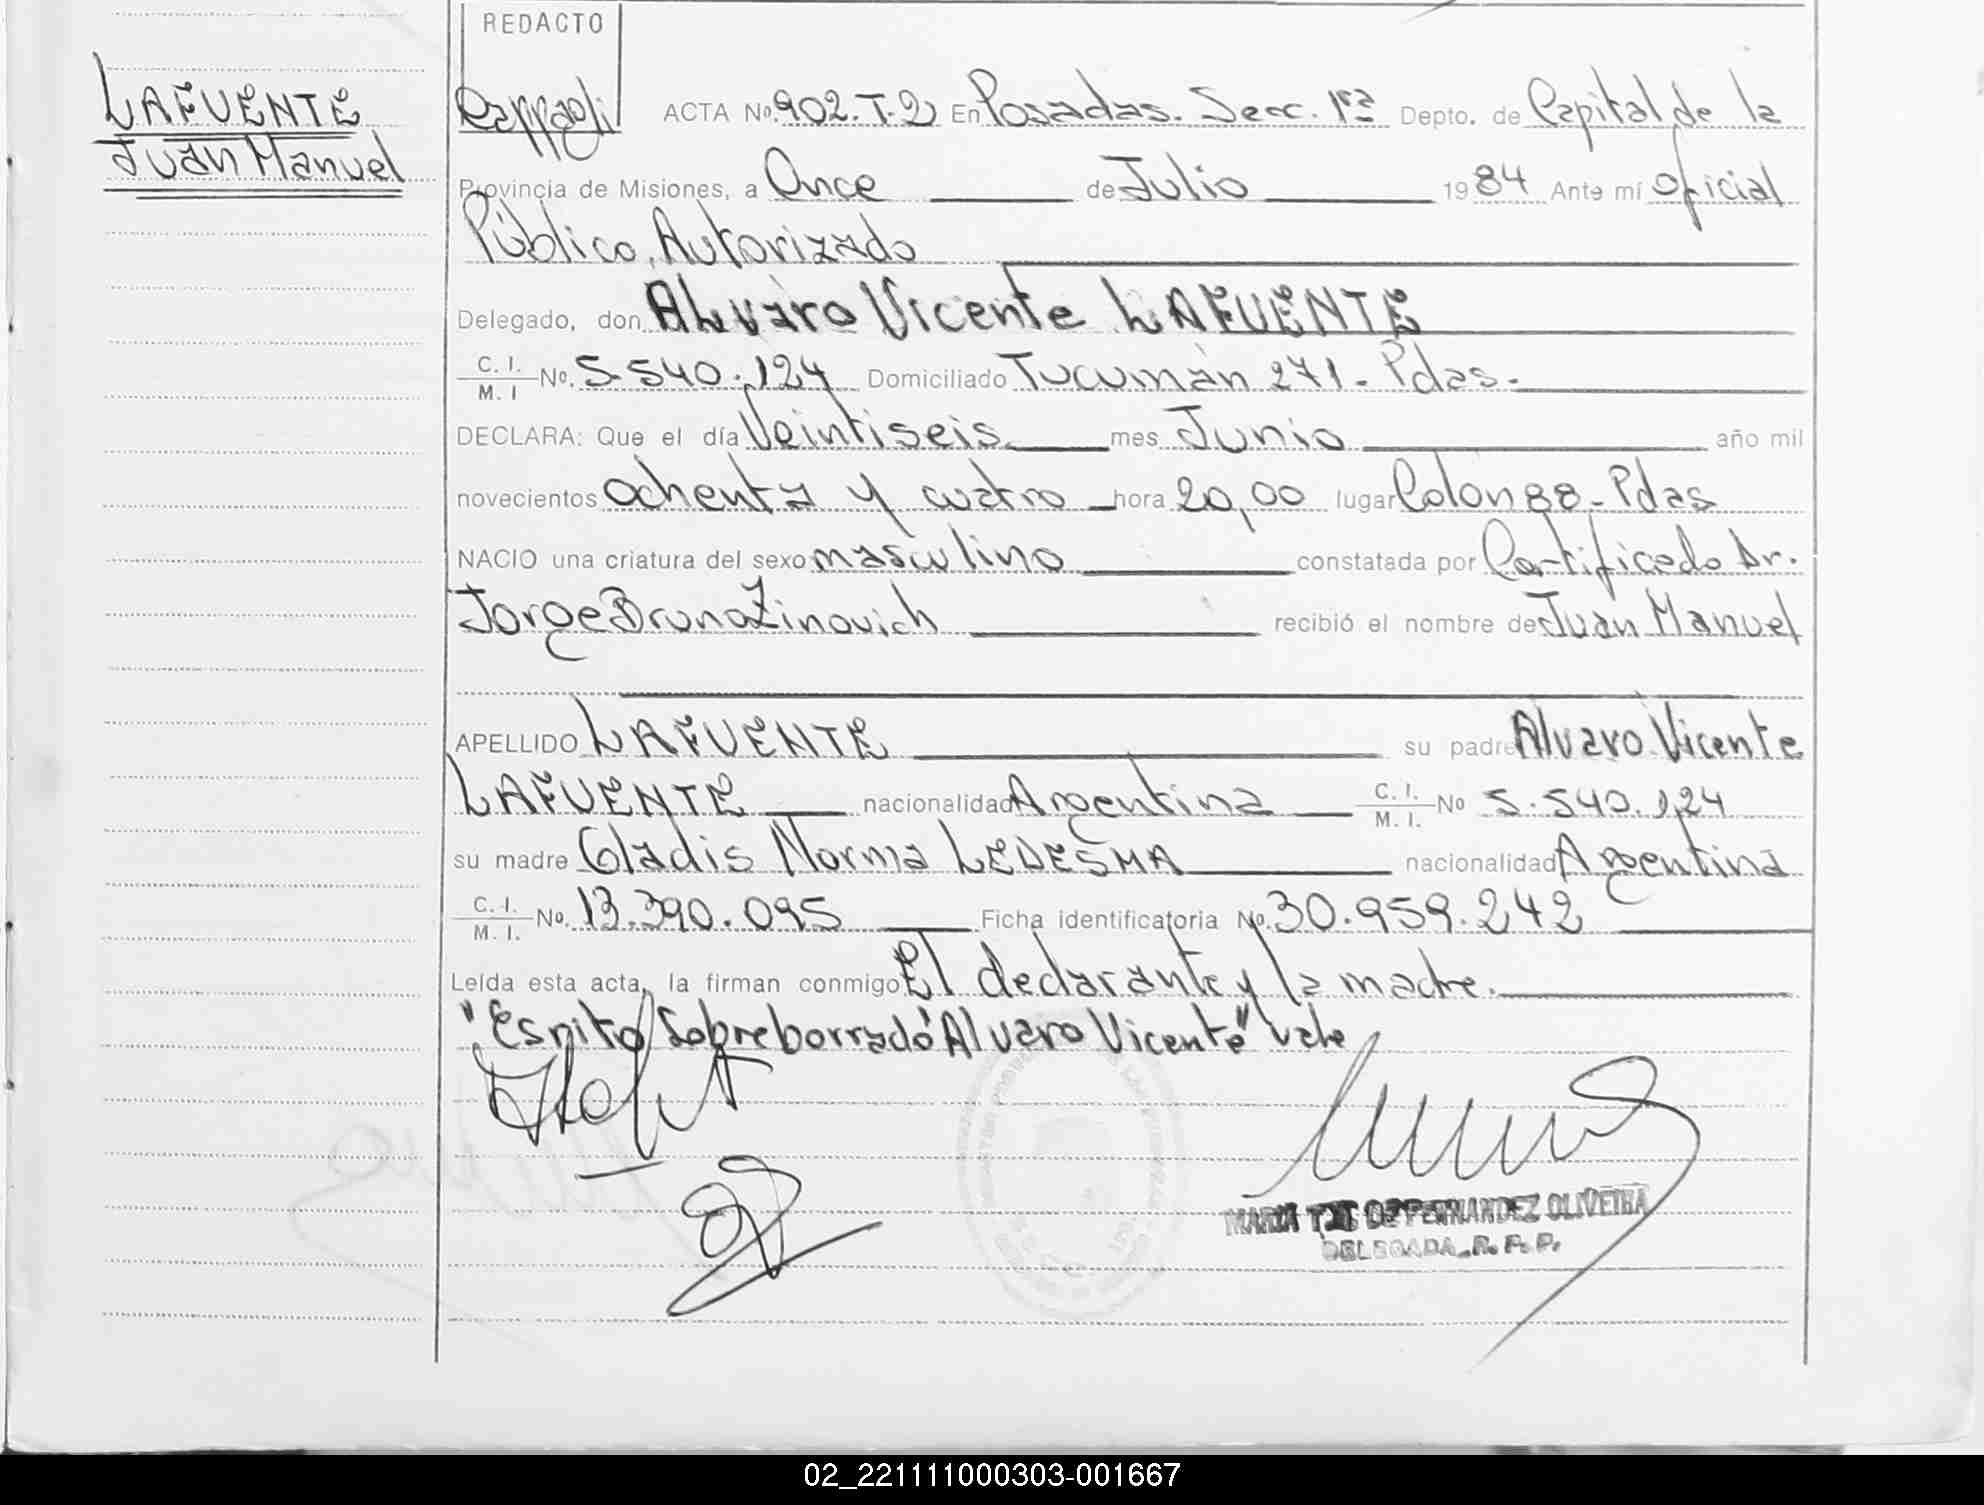 REDACTO
LAFUENTE
Juan Manuel
ACTA Nº. 902. T. 2 En Posadas. Secc. 1ra Depto. de Capital de la
Provincia de Misiones, a Once de Julio 1984 Ante mí Oficial
Público Autorizado
Delegado, don Alvaro Vicente LAFUENTE
C. I.
M. I Nº. 5.540.124 Domiciliado Tucumán 271 - Pdas.
DECLARA: Que el día Veintiseis mes Junio año mil
novecientos ochenta y cuatro hora 20,00 lugar Colón 88 - Pdas
NACIO una criatura del sexo masculino constatada por Certificado Dr.
Jorge Bruno Zinovich recibió el nombre de Juan Manuel
APELLIDO LAFUENTE su padre Alvaro Vicente
LAFUENTE nacionalidad Argentina C. I.
M. I. Nº 5.540.124
su madre Gladis Norma LEDESMA nacionalidad Argentina
C. I.
M. I. Nº. 13.390.095 Ficha identificatoria Nº. 30.959.242
Leída esta acta, la firman conmigo El declarante y la madre.
"Escrito Sobreborrado "Alvaro Vicente" Vale
FERNANDEZ OLIVEIRA
DELEGADA R. P. P.
02_221111000303-001667